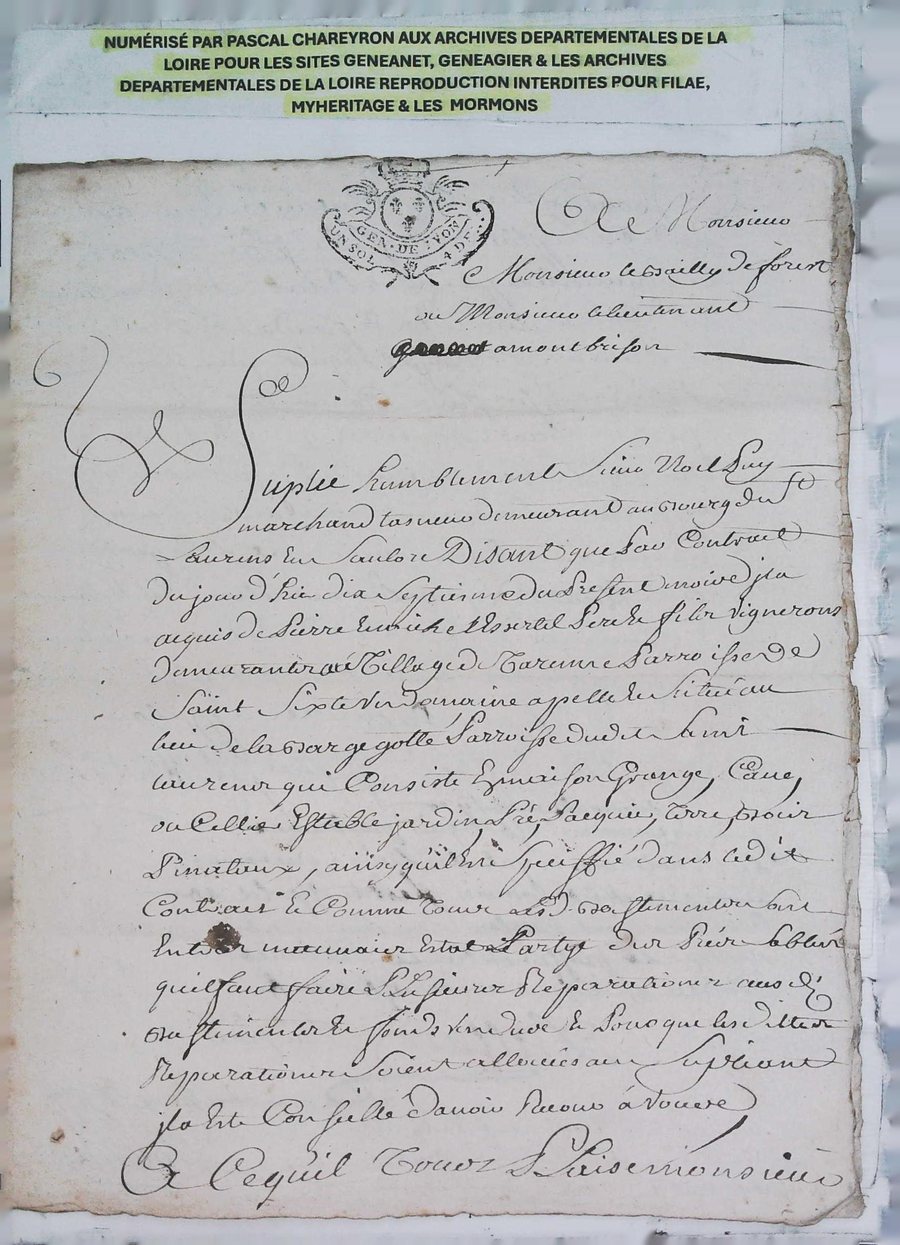 NUMÉRISÉ PAR PASCAL CHAREYRON AUX ARCHIVES DEPARTEMENTALES DE LA
LOIRE POUR LES SITES GENEANET, GENEAGIER & LES ARCHIVES
DEPARTEMENTALES DE LA LOIRE REPRODUCTION INTERDITES POUR FILAE,
MYHERITAGE & LES MORMONS
GEN·DE LYON
UN SOL 4 DE
A Monsieur
Monsieur le Bailly de forest
ou Monsieur le lieutenant
a montbrison
Suplie humblement Sieur Noel Puy
marchand demeurant au Bourg du St
Laurens En Disant que par Contract
du jour d'hier dix Septieme du present mois jl a
acquis de Pierre Pere & fils vignerons
demeurants au Village de Parroisse de
Saint Sixte Vn domaine apellé & Situé au
lieu de la Parroisse dudit Saint
laurens qui Consiste En maison Grange, Cave,
ou Cellier Estable jardin, Pré, Pacquier, terre, Bois
Pinateux, ainsy qu'il Est Speciffié dans ledit
Contract & Comme tous lesd. Bastimentes sont
En tres mauvais Estat
qu'il faut faire Plusieurs Reparationes aux d.
Bastimentes & fonds vendus & Pour que lesdittes
Reparationes Soient allouées au Supliant
jl a Esté Conseillé d'avoir Recours à Vous
A Ce quil Vous Plaise monsieur